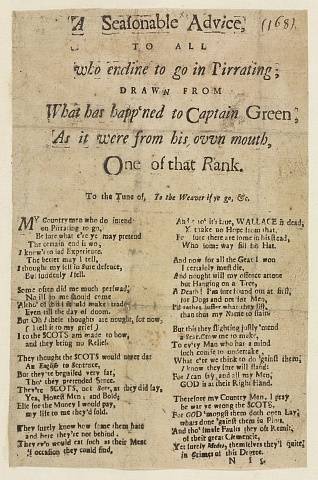 A Seasonable Advice,
(168)
TO ALL
who encline to go in Pirrating;
DRAWN FROM
What has happ'ned to Captain Green;
As it were from his ovvn mouth,
One of that Rank.
To the Tune of, To the Weaver if ye go, &c.
MY Countrymen who do intend
on Pirrating to go,
Be sure what e're ye may pretend
The certain end is wo,
I know't to sad Experience.
The better may I tell,
I thought my self in sure defence,
But suddenly I fell.
Some often did me much perswad;
No ill to me should come
Altho' of this I should make a trade,
Even till the day of doom.
But Oh! their thoughts are nought, for now,
( I tell it to my grief )
I to the SCOTS am made to bow,
and they bring no Relief.
They thought the SCOTS would never dar
An English to Sentence,
But they're beguiled very far,
Tho' they pretended Sense.
They're SCOTS, not as they did say,
Yea, Honest Men, and Bold;
Else for the Money I would pay,
my life to me they'd sold.
They surely know how fame them hate
and here they're not behind,
They e'en would eat such as their Meat
if occasion they could find,
And tho' it's true, WALLACE is dead;
Y. take no Hope from that,
For sure there are some in his stead,
Who some way fill his Hat.
And now for all the Gear I won
I certainly must die,
And nought will my offence atone
but Hanging on a Tree,
A Death! I'm sure found out at first,
for Dogs and not for Men,
than thus my Name to stain
But this they flighting justly 'mend
To ev'ry Man who has a mind
such course to undertake
What e'er we think to do 'gainst them,
I know they sure will find:
For I can say, and all my Men,
GOD is at their Right Hand.
Therefore my Country Men, I pray
be war ye wrong the SCOTS,
For GOD 'mongst them doth open Lay,
whats done 'gainst them in Plots,
And tho' some Faults they do Remit,
of their great Clemencie,
Yet surely themselves they'l quite
in Crimes of this Degree.
FINIS.